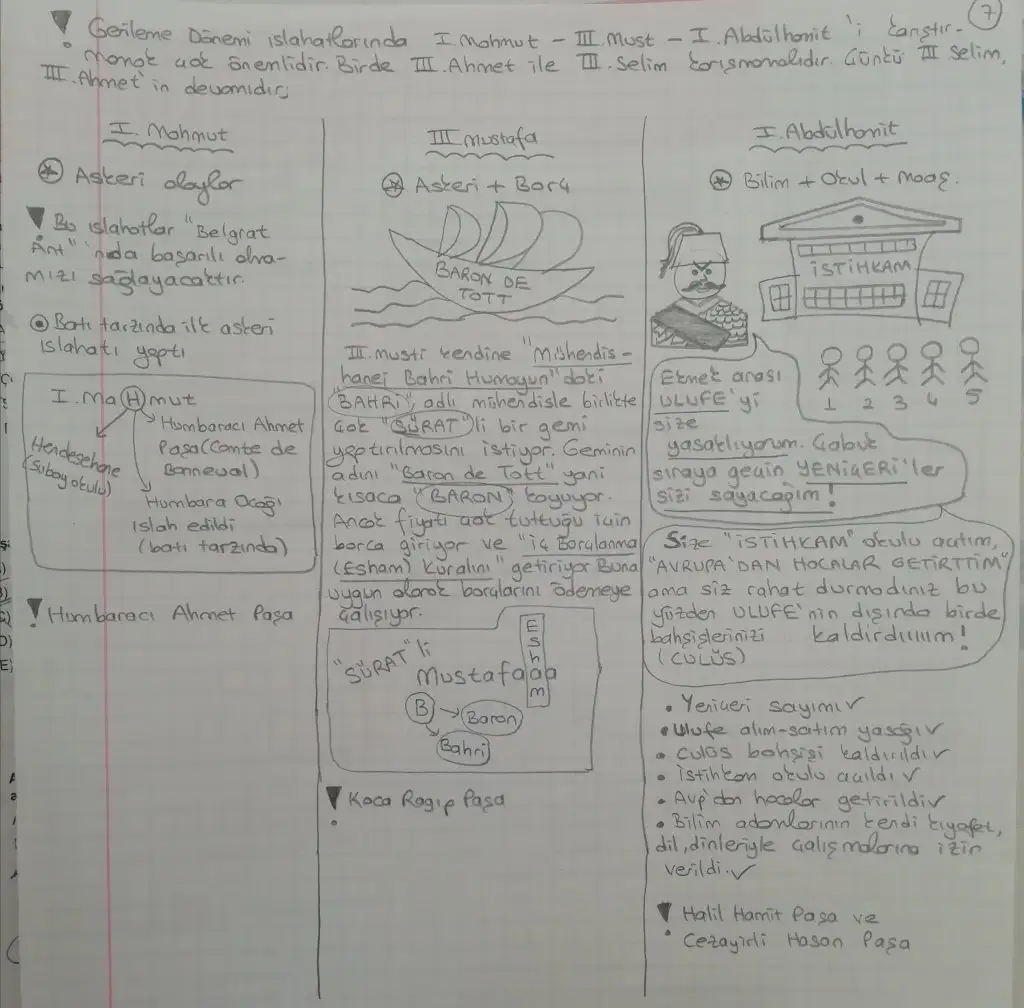 7
! Gerileme Dönemi ıslahatlarında I. Mahmut - III. Must - I. Abdülhamit 'i karıştır-
mamak çok önemlidir. Birde III. Ahmet ile III. Selim karışmamalıdır. Çünkü III Selim,
III. Ahmet'in devamıdır;
I. Mahmut
Askeri olaylar
! Bu ıslahatlar "Belgrat
Ant" 'nda başarılı olma-
mızı sağlayacaktır.
Batı tarzında ilk askeri
ıslahatı yaptı
I. Ma(H)mut
Hendesehane
(subay okulu)
Humbaracı Ahmet
Paşa (Comte de
Bonneval)
Humbara Ocağı
ıslah edildi
(batı tarzında)
! Humbaracı Ahmet Paşa
III Mustafa
Askeri + Borç
BARON DE
TOTT
III. musti kendine "Mühendis-
hanei Bahri Humayun" daki
"BAHRİ", adlı mühendisle birlikte
çok "SÜRAT"li bir gemi
yaptırılmasını istiyor. Geminin
adını "Baron de Tott" yani
kısaca "BARON" koyuyor.
Ancak fiyatı çok tuttuğu için
borca giriyor ve "iç Borçlanma
(Esham) kuralını" getiriyor Buna
uygun olarak borçlarını ödemeye
çalışıyor.
"SÜRAT"li
Mustafaaa
Esham
B → Baron
Bahri
! Koca Ragıp Paşa
I. Abdülhamit
Bilim + Okul + Maaş.
İSTİHKAM
1 2 3 4 5
Ekmek arası
ULUFE'yi
size
yasaklıyorum. Çabuk
sıraya geçin YENİÇERİ'ler
sizi sayacağım!
Size "İSTİHKAM" okulu açtım,
"AVRUPA'DAN HOCALAR GETİRTTİM"
ama siz rahat durmadınız bu
yüzden ULUFE'nin dışında birde
bahşişlerinizi kaldırdııım!
(CULÜS)
• Yeniçeri sayımı ✓
• Ulufe alım-satım yasağı ✓
• culüs bahşişi kaldırıldı ✓
• istihkam okulu açıldı ✓
• Avp'dan hocalar getirildi ✓
• Bilim adamlarının kendi kıyafet,
dil, dinleriyle çalışmalarına izin
verildi. ✓
! Halil Hamit Paşa ve
Cezayirli Hasan Paşa